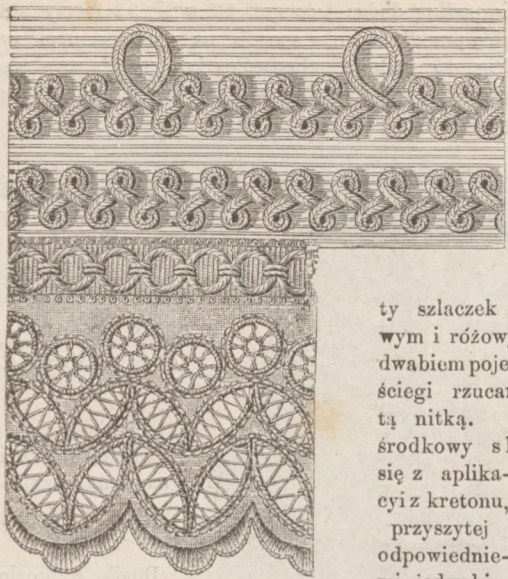 ty szlaczek
wym i różow
dwabiem poje
ściegi rzucan
tą nitką.
środkowy sk
się z aplika-
cyi z kretonu,
przyszytej
odpowiednie-